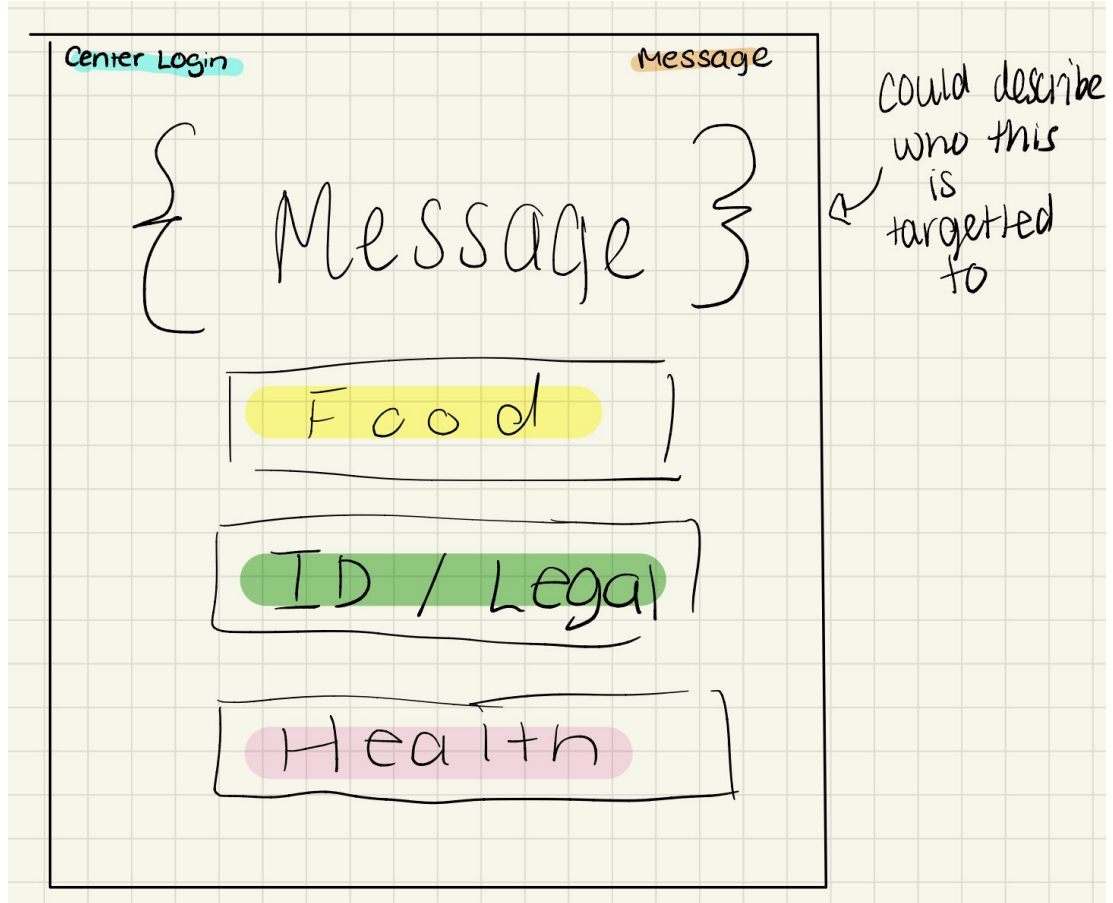 Center Login
Message
{ Message }
could describe
who this
is
targetted
to
Food
ID / Legal
Health